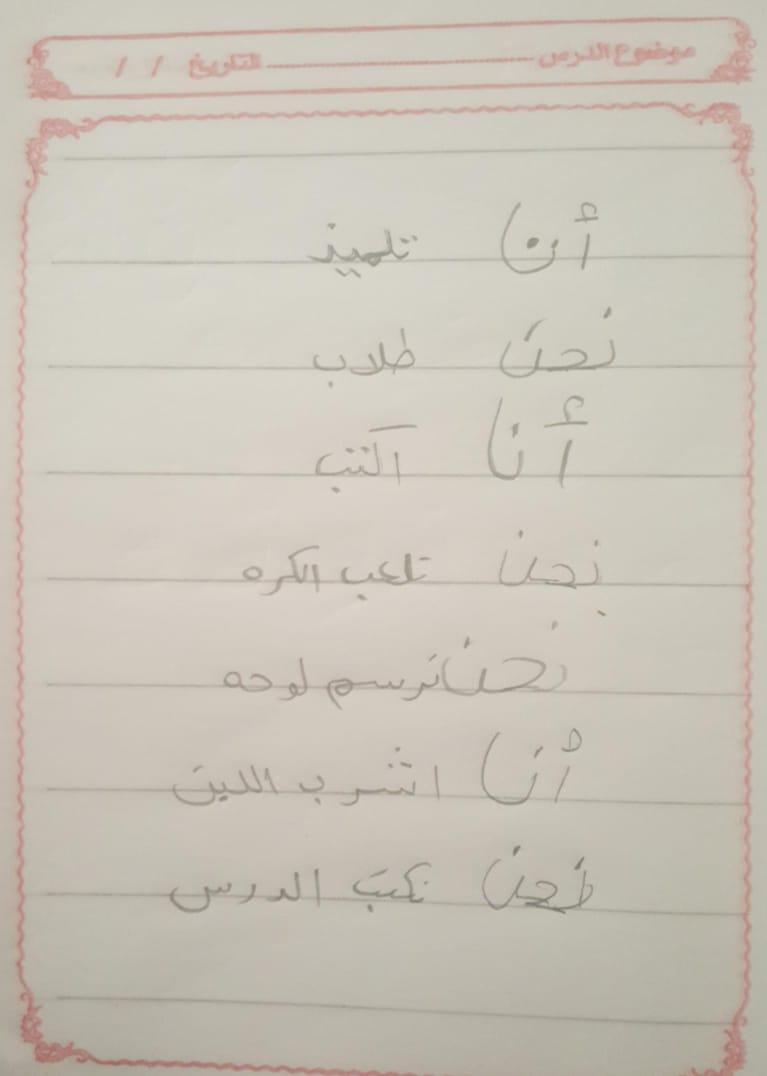 موضوع الدرس ........ التاريخ / /
أنا تلميذ
نحن طلاب
أنا اكتب
نحن نلعب الكره
نحن نرسم لوحه
أنا اشرب اللبن
نحن نكتب الدرس